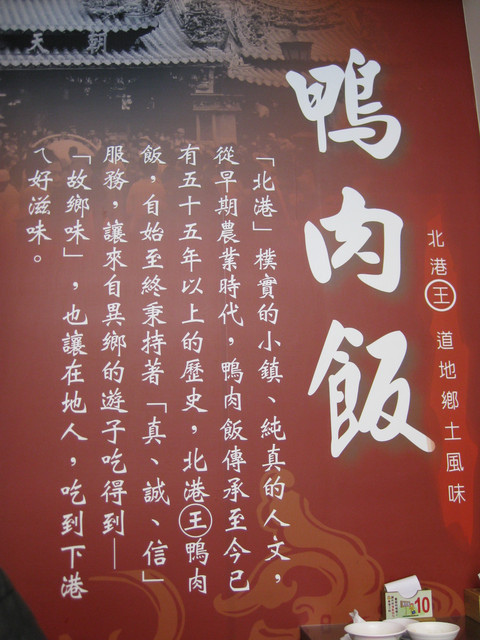 北港王 道地鄉土風味
鴨肉飯
「北港」樸實的小鎮、純真的人文，
從早期農業時代，鴨肉飯傳承至今已
有五十五年以上的歷史，北港王鴨肉
飯，自始至終秉持著「真、誠、信」
服務，讓來自異鄉的遊子吃得到—
「故鄉味」，也讓在地人，吃到下港
ㄟ好滋味。
天朝
10